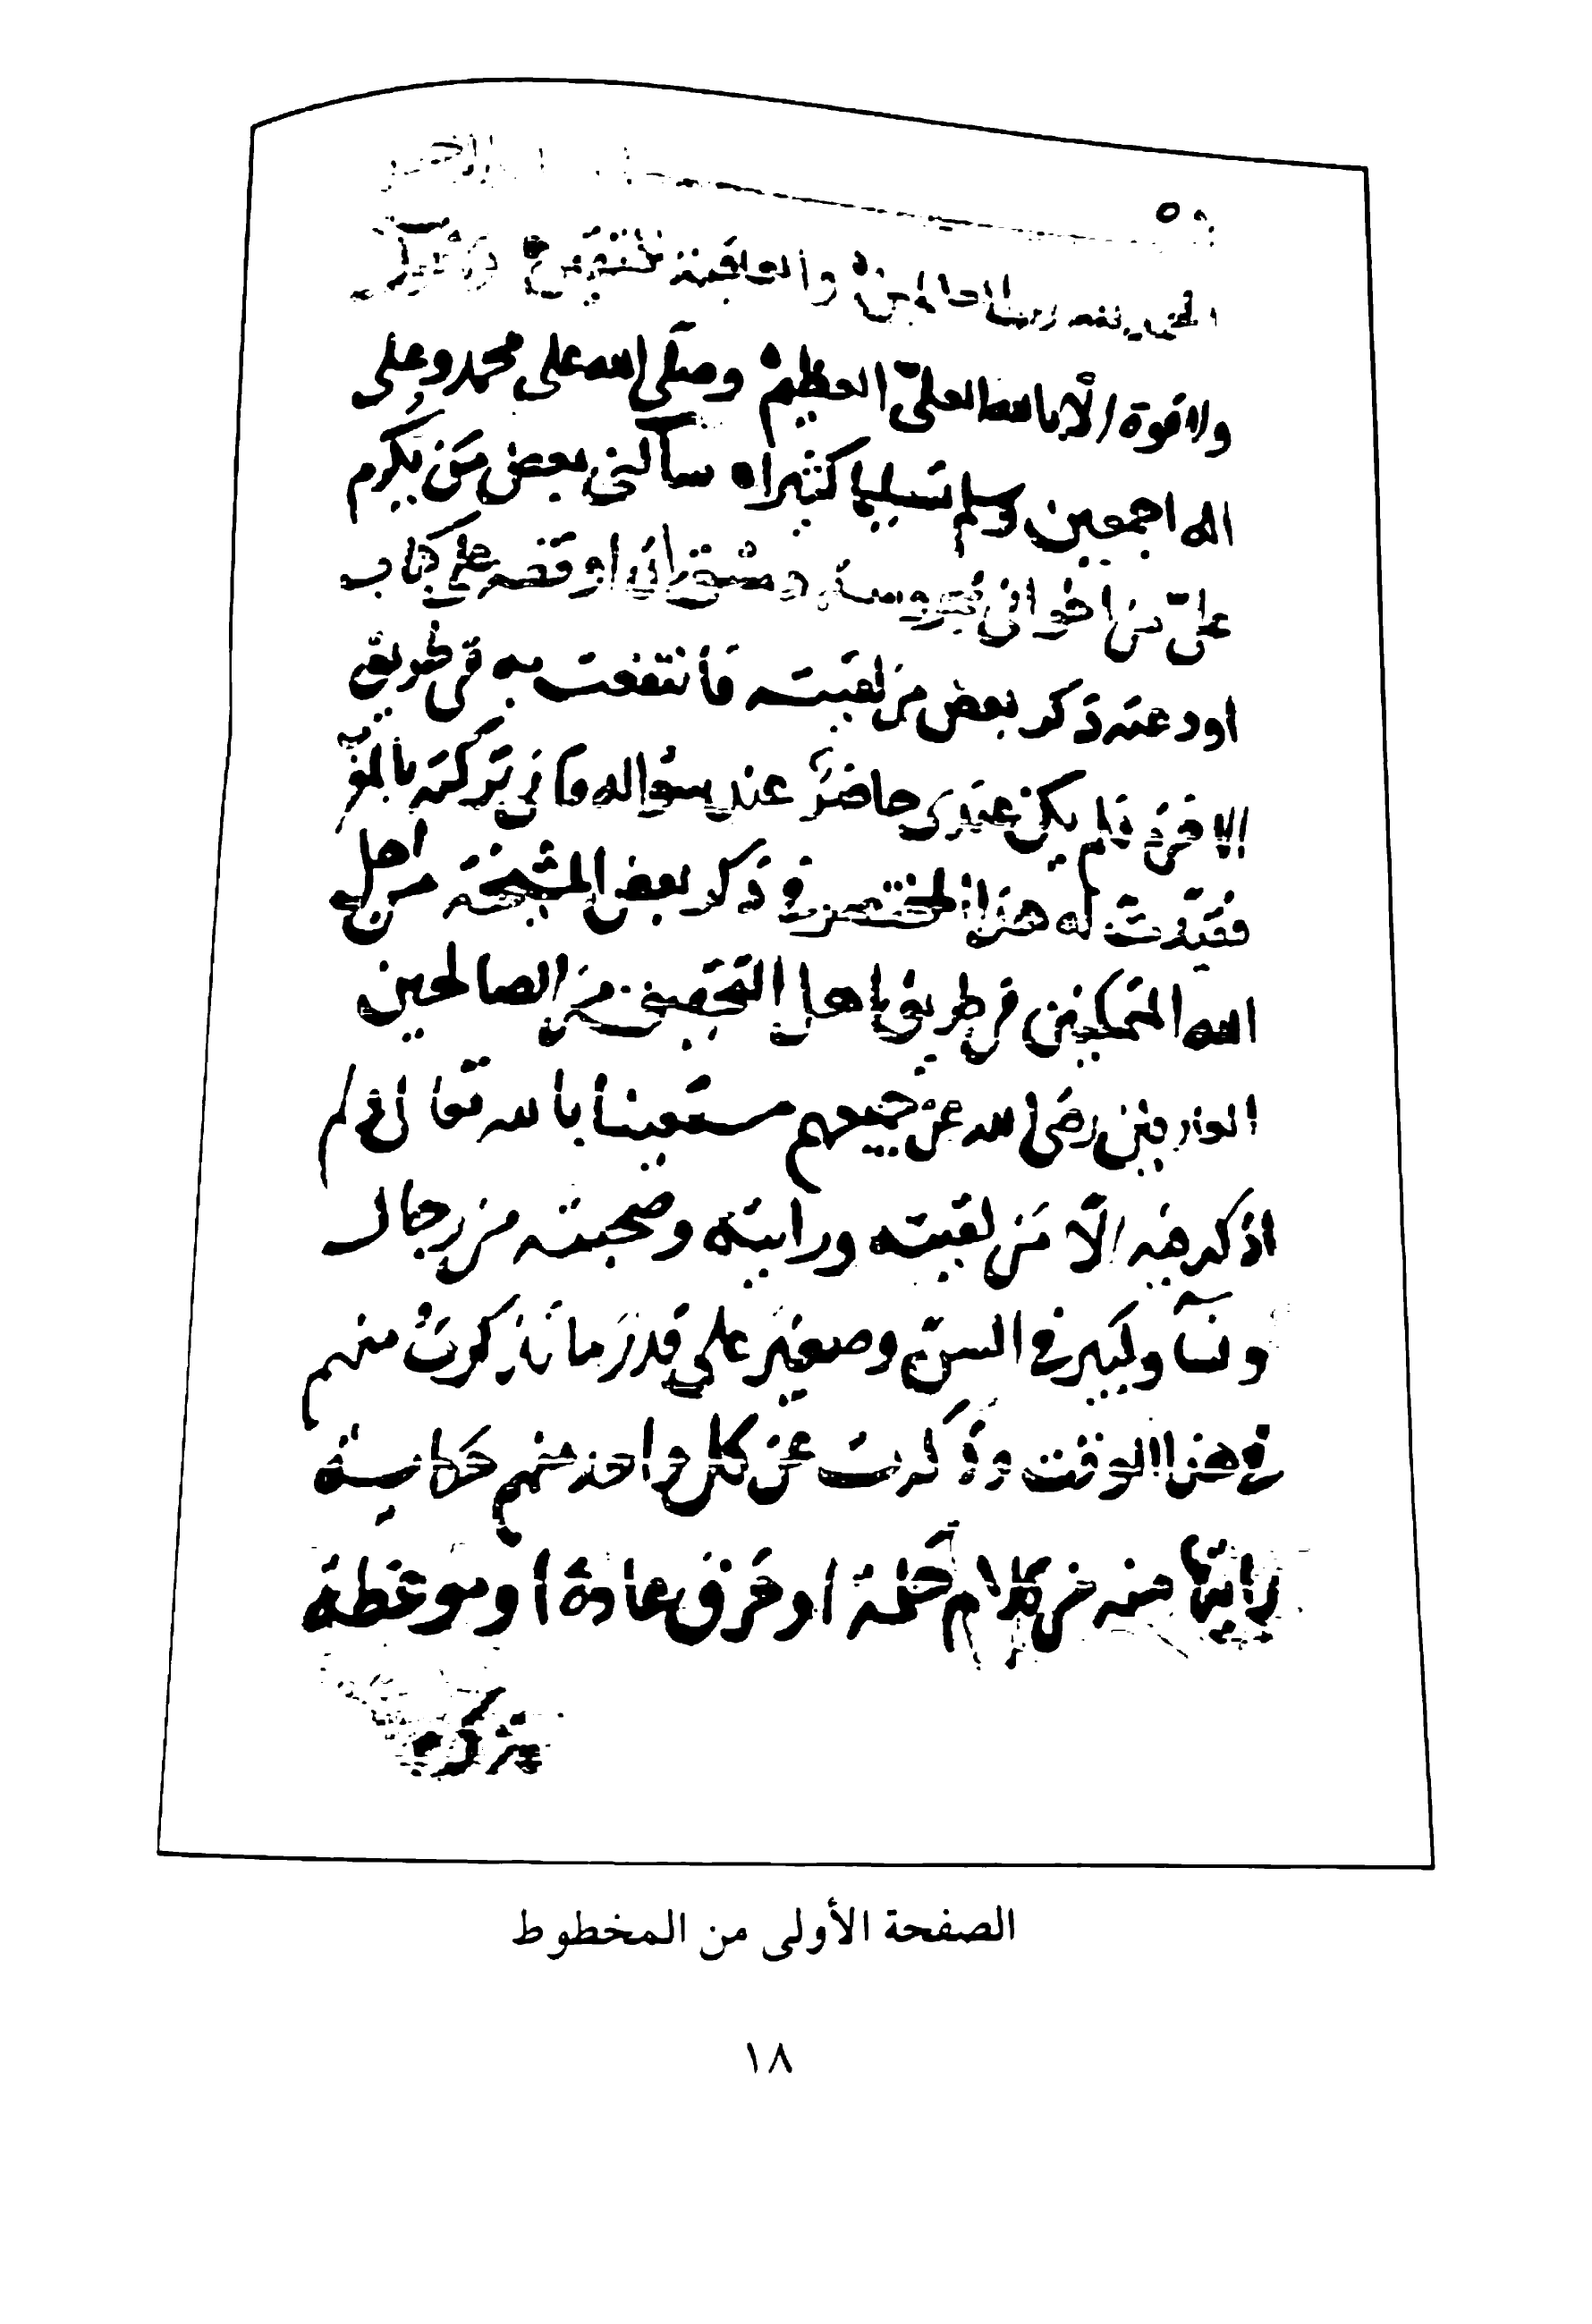 الحمد لله رب العالمين والعاقبة للمتقين ولا حول
ولا قوة إلّا بالله العليّ العظيم وصلّى الله على محمد وعلى
اله اجمعين وسلم تسليما كثيرا سألني بعض من يكرم
عليّ من اخواني بمدينة دمشق ان اوقفه على كتاب
اودعته ذكر بعض من لقيته فانتفعت به في طريق
الاخرة فلم يكن عندي حاضرًا عند سؤاله فاني تركته بالمغرب
فقيّدت له هذا المختصر في ذكر بعض المشيخة من اهل
الله المتمكنين في طريق اهل التحقيق من الصالحين
العارفين رضي الله عن جميعهم مستعينا بالله تعالى ولم
اذكر فيه إلّا من لقيته ورايته وصحبته من رجال
ونسآ وكبير في السن وصغير على قدر ما تذكرت منهم
في هذا الوقت وذكرت عن كل واحد منهم حكاية
رايتها منه من كلام حكمة او خرق عادة او موعظة
الصفحة الأولى من المخطوط
١٨